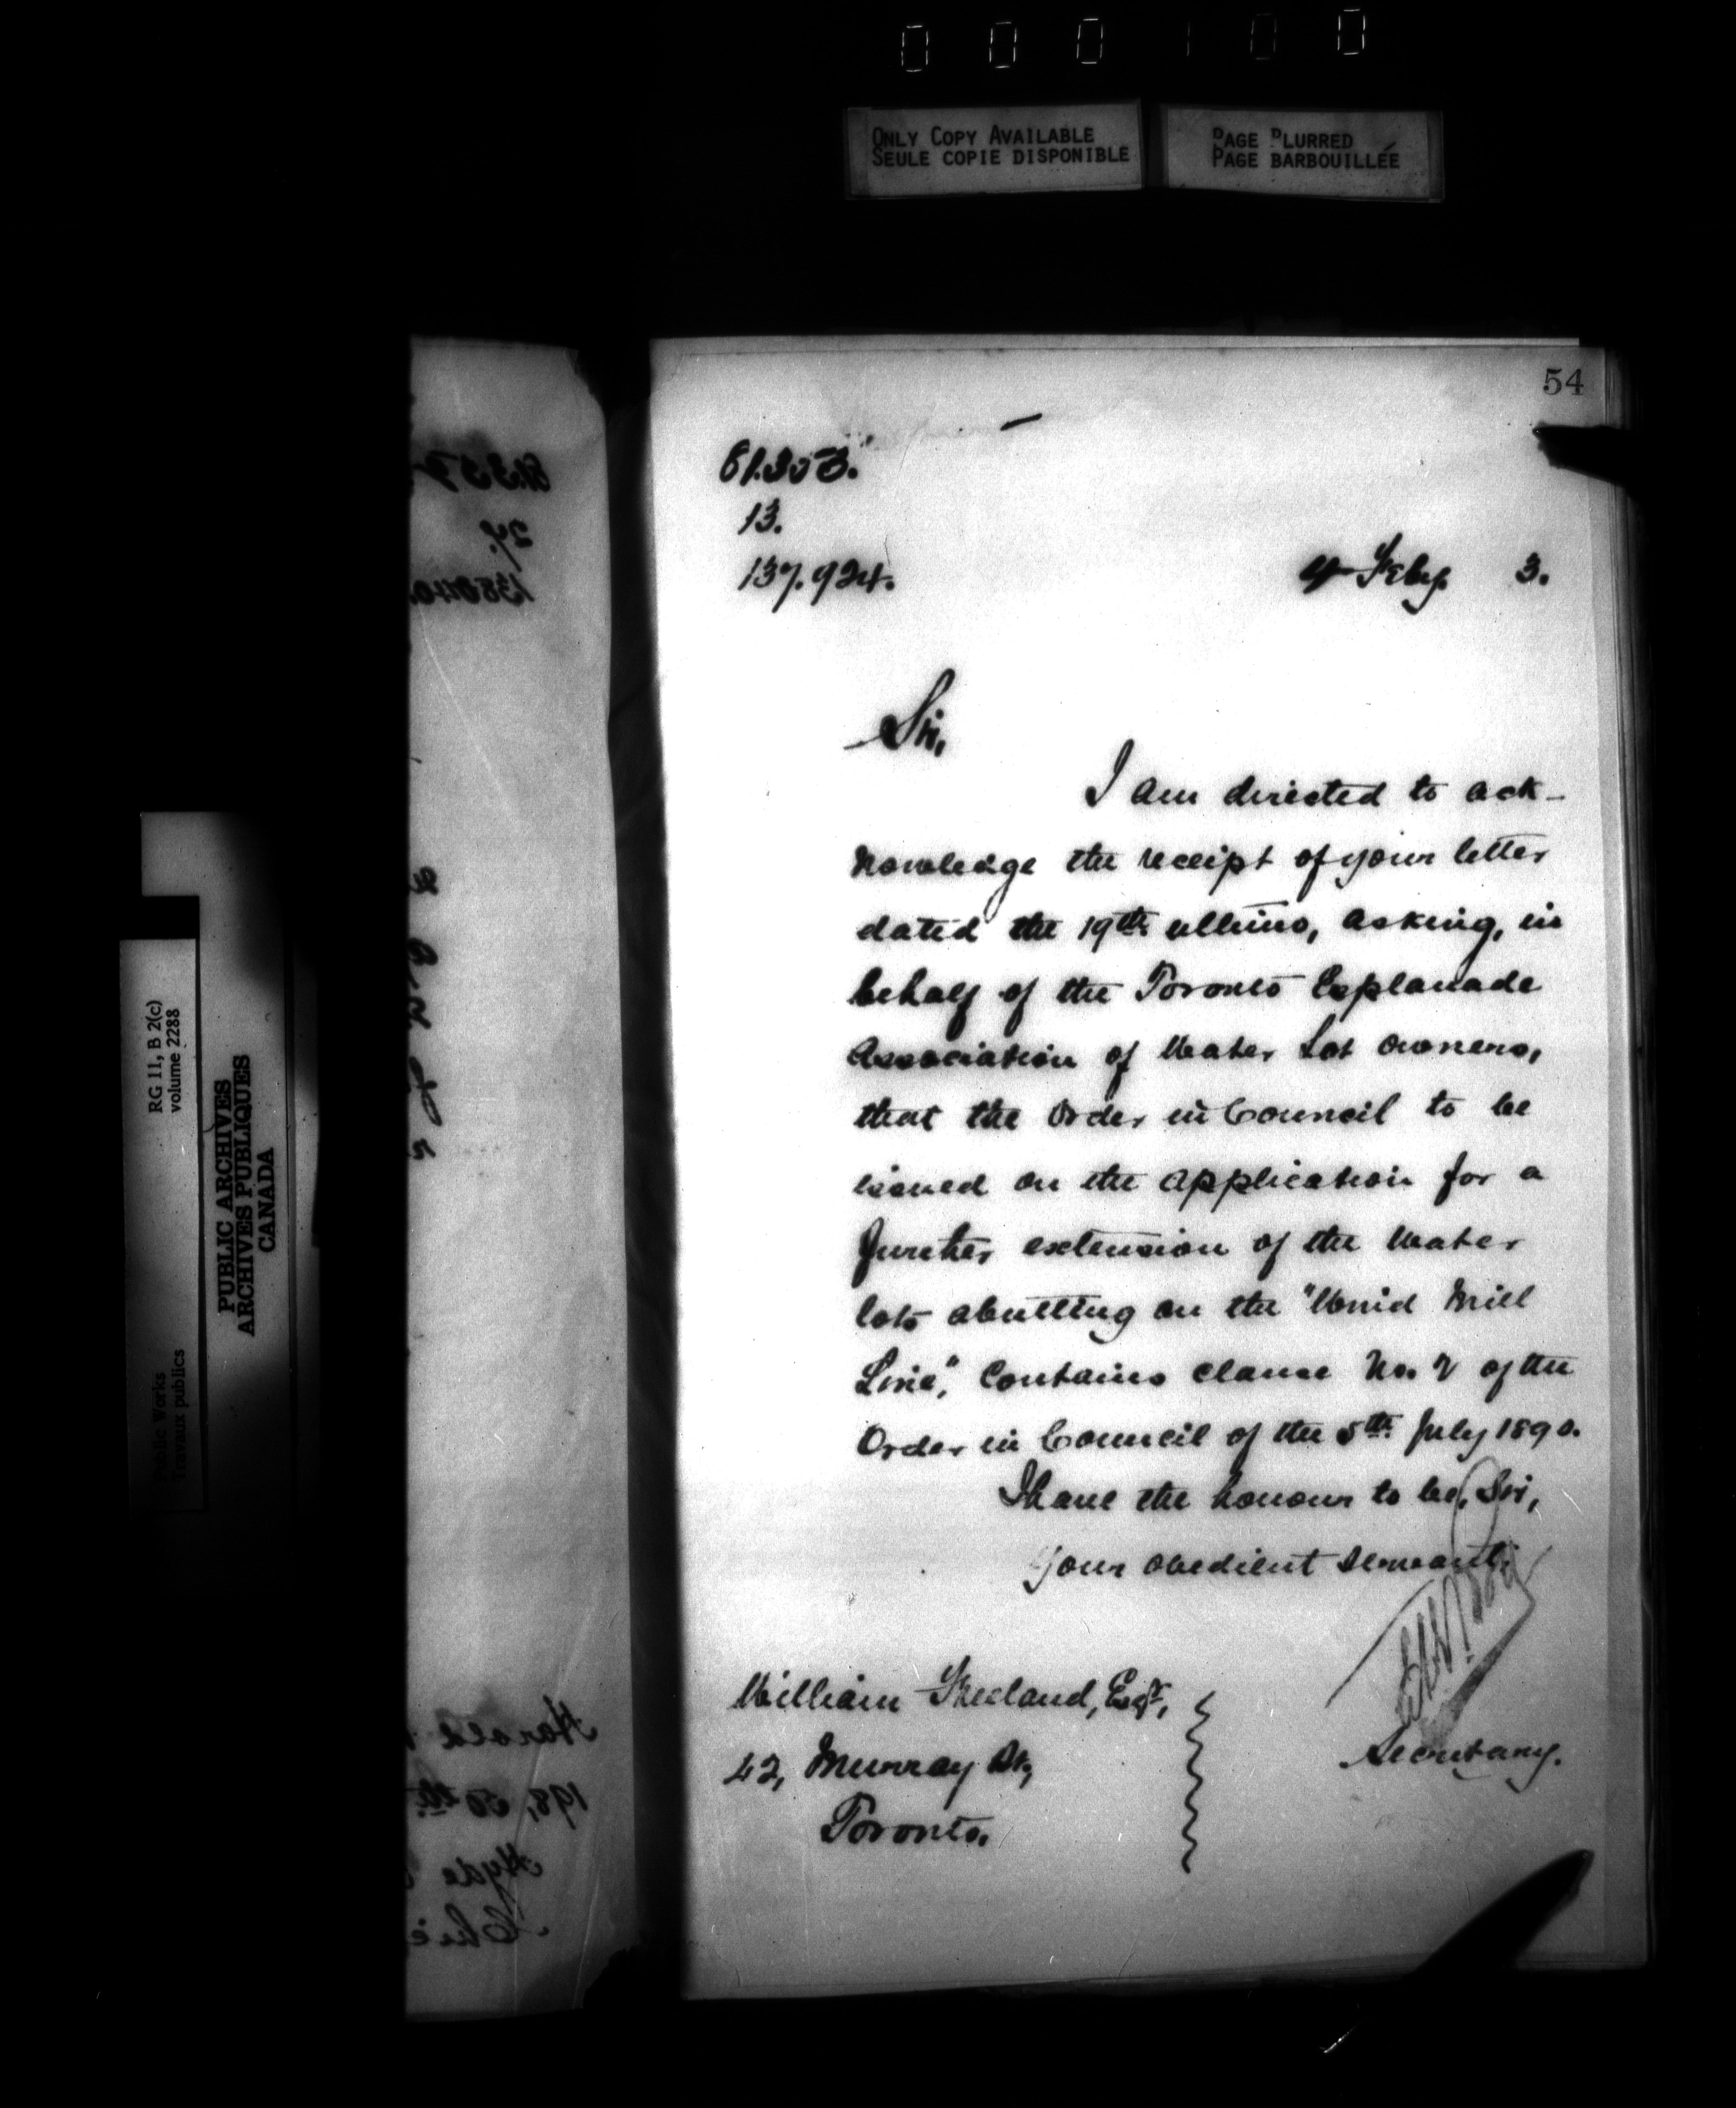 000100
ONLY COPY AVAILABLE
SEULE COPIE DISPONIBLE
PAGE BLURRED
PAGE BARBOUILLÉE
54
13.
137.924.
4 Feby. 3.
Sir,
I am directed to ack-
nowledge the receipt of your letter
dated the 19th ultimo, asking, in
behalf of the Toronto Esplanade
Association of Water Lot Owners,
that the Order in Council to be
issued on the application for a
further extension of the Water
lots abutting on the "Wind Mill
Line", contains clause No. 2 of the
Order in Council of the 5th July 1890.
I have the honour to be, Sir,
Your obedient servant,
Secretary.
William Freeland, Esqr,
42, Murray St,
Toronto.
RG 11, B 2(c)
volume 2288
Public Works
Travaux publics
PUBLIC ARCHIVES
ARCHIVES PUBLIQUES
CANADA